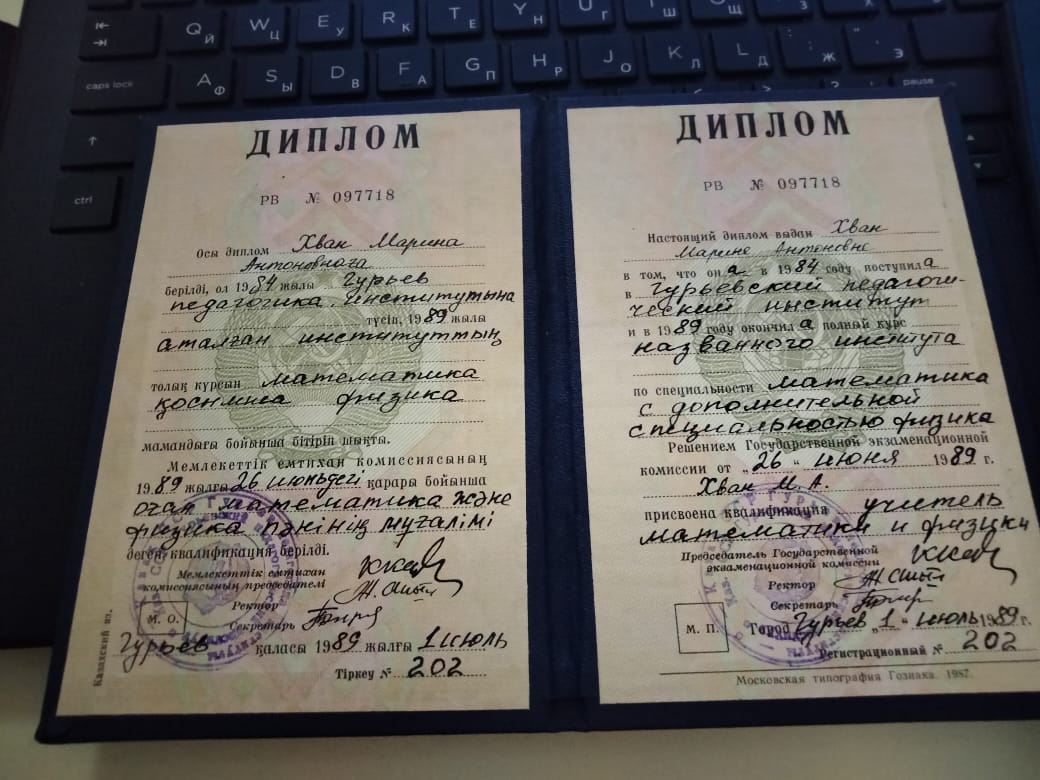 Q Й
W Ц
E У
R К
T Е
Y Н
U Г
Ш
Щ
З
caps lock
A Ф
S Ы
D В
F А
G П
H Р
J О
K Л
L Д
Ж
Э
pause
ctrl
ДИПЛОМ
РВ № 097718
Осы диплом Хван Марина
Антоновнаға
берілді, ол 1984 жылы Гурьев
педагогика институтына
түсіп, 1989 жылы
аталған институттың
толық курсын математика
қосымша физика
мамандығы бойынша бітіріп шықты.
Мемлекеттік емтихан комиссиясының
1989 жылғы 26 июньдегі қарары бойынша
оған математика және
физика пәнінің мұғалімі
деген квалификация берілді.
Мемлекеттік емтихан
комиссиясының председателі
Ректор
М. О.
Секретарь
Гурьев қаласы 1989 жылғы 1 июль
Тіркеу № 202
Казахский яз.
ДИПЛОМ
РВ № 097718
Настоящий диплом выдан Хван
Марине Антоновне
в том, что она в 1984 году поступила
в Гурьевский педагоги-
ческий институт
и в 1989 году окончила полный курс
названного института
по специальности математика
с дополнительной
специальностью физика
Решением Государственной экзаменационной
комиссии от „26“ июня 1989 г.
Хван М. А.
присвоена квалификация учитель
математики и физики
Председатель Государственной
экзаменационной комиссии
Ректор
Секретарь
М. П.
Город Гурьев „1“ июль 1989 г.
Регистрационный № 202
Московская типография Гознака. 1987.